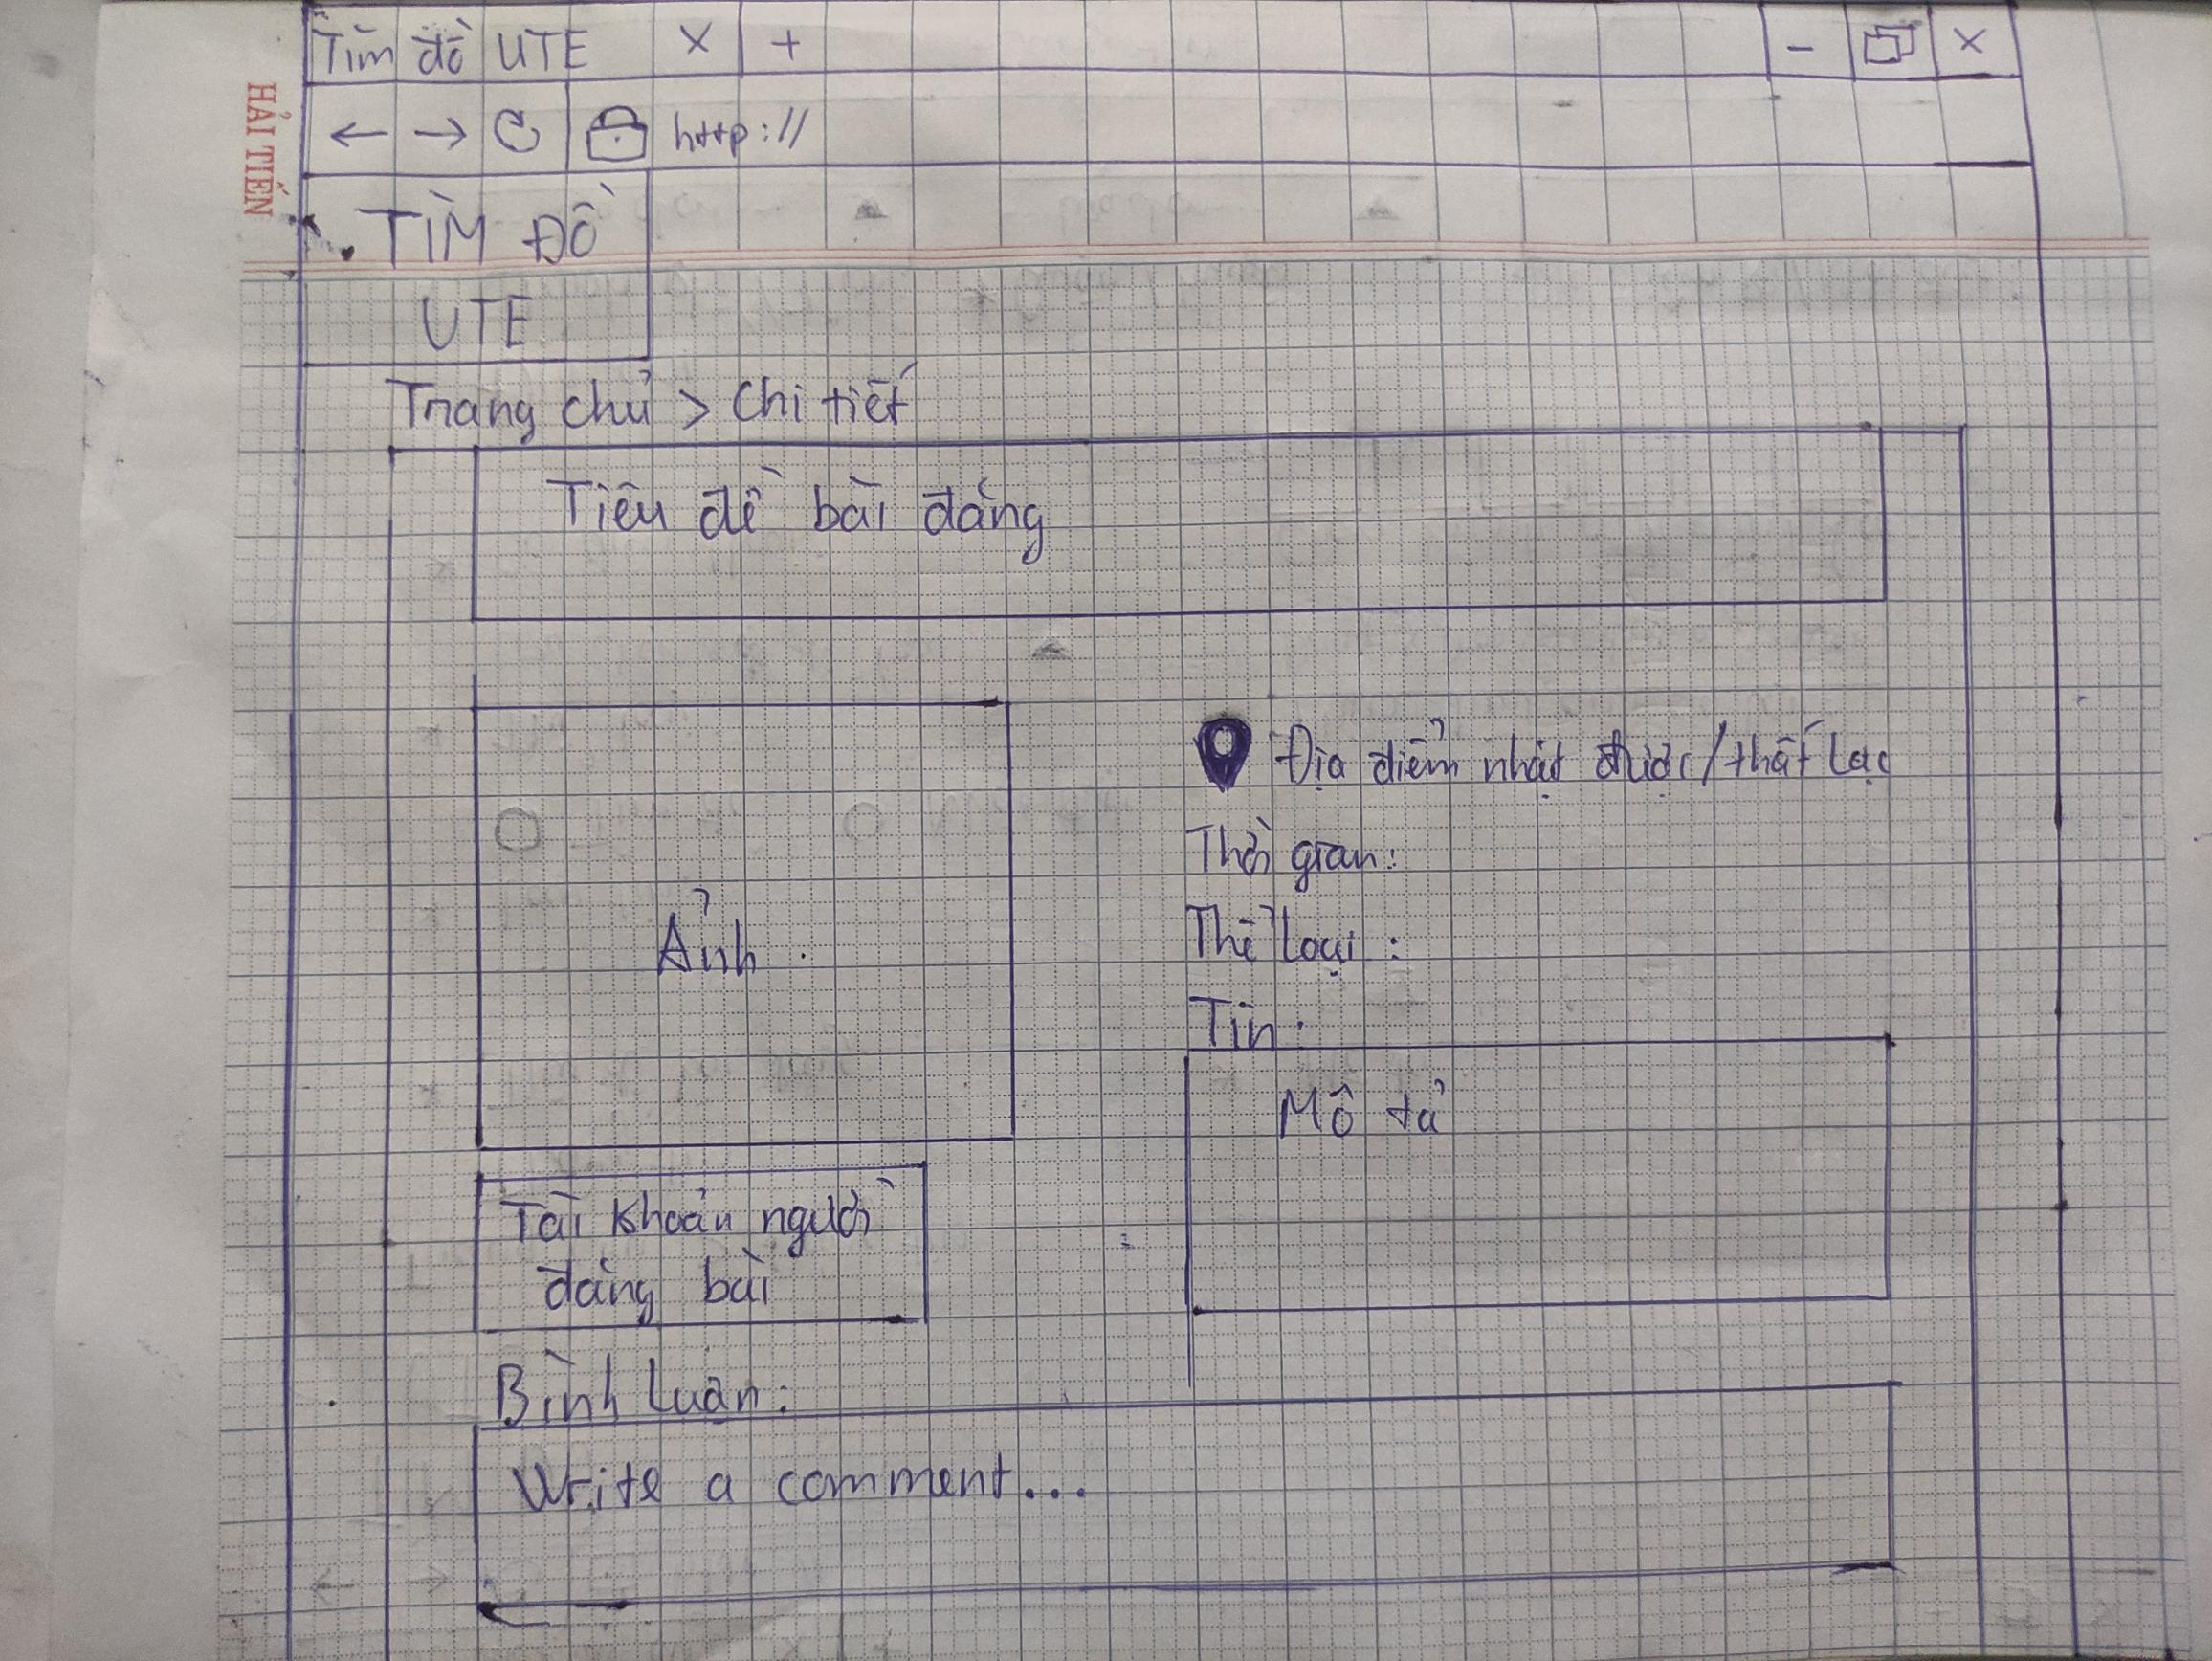 Tìm đồ UTE X +
- X
← → http://
HẢI TIẾN
TÌM ĐỒ
UTE
Trang chủ > Chi tiết
Tiêu đề bài đăng
Địa điểm nhặt được/thất lạc
Thời gian:
Ảnh
Thể loại:
Tin:
Mô tả
Tài khoản người
đăng bài
Bình luận:
Write a comment...